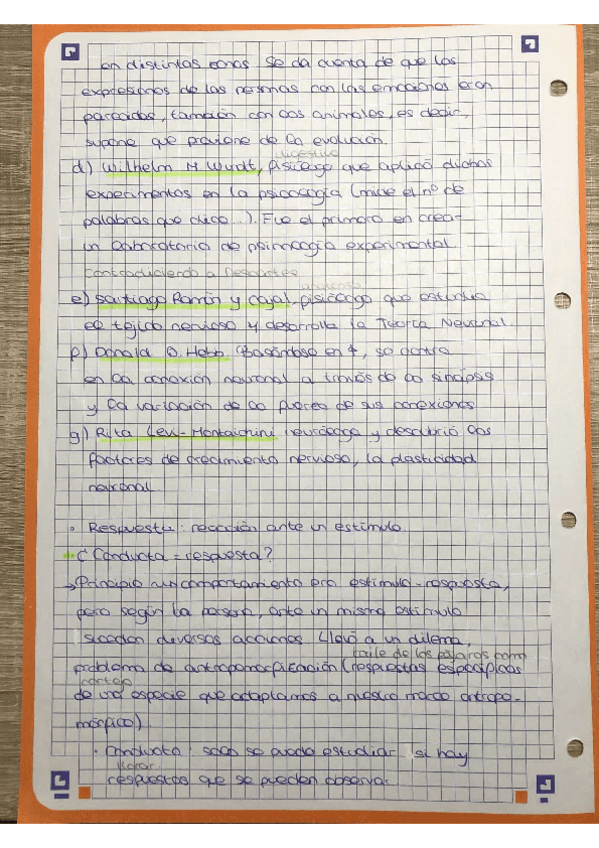 en distintas zonas se da cuenta de que las
expresiones de las personas con las emociones eran
parecidas, también con los animales, es decir,
supone que proviene de la evolución.
digestivo
d) Wilhelm M Wundt, fisiólogo que aplicó dichos
experimentos en la psicología (mide el nº de
palabras que dice...). Fue el primero en crear
un laboratorio de psicología experimental
Contradiciendo a Descartes
e) Santiago Ramón y Cajal, fisiólogo que estudia
el tejido nervioso y desarrolla la Teoría Neuronal.
f) Donald O. Hebb (Basándose en , se centra
en la conexión neuronal a través de la sinapsis
y la variación de la fuerza de sus conexiones
g) Rita Levi-Montalchini neuróloga y descubrió los
factores de crecimiento nervioso, la plasticidad
neuronal.
• Respuesta: reacción ante un estímulo.
¿Conducta = respuesta?
→ Principio un comportamiento era estímulo-respuesta,
pero según la persona, ante un mismo estímulo
suceden diversas acciones. Llevó a un dilema,
baile de los pájaros como
problema de antropomorfización (respuestas específicas
cortejo
de una especie que adaptamos a nuestro marco antropo-
mórfico)
• Conducta: solo se puede estudiar si hay
llorar
respuestas que se pueden observar.